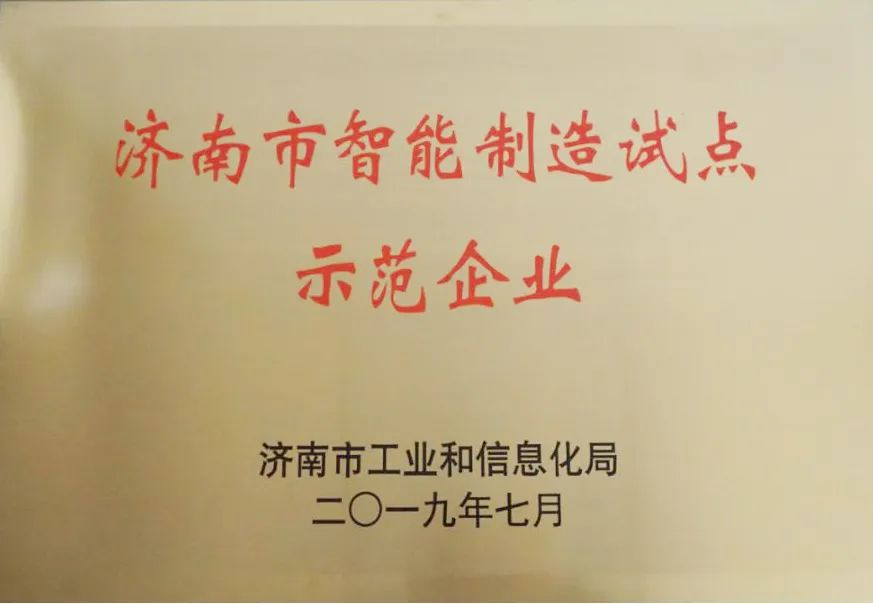 济南市智能制造试点
示范企业
济南市工业和信息化局
二〇一九年七月